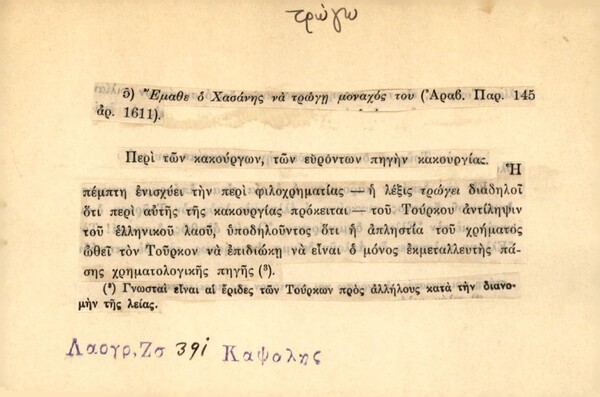 τρώγω
δ) Ἔμαθε ὁ Χασάνης νὰ τρώγῃ μοναχός του (Ἀραβ. Παρ. 145
ἀρ. 1611).
Περὶ τῶν κακούργων, τῶν εὑρόντων πηγὴν κακουργίας. Ἡ
πέμπτη ἐνισχύει τὴν περὶ φιλοχρηματίας — ἡ λέξις τρώγει διαδηλοῖ
ὅτι περὶ αὐτῆς τῆς κακουργίας πρόκειται — τοῦ Τούρκου ἀντίληψιν
τοῦ ἑλληνικοῦ λαοῦ, ὑποδηλοῦντος ὅτι ἡ ἀπληστία τοῦ χρήματος
ὠθεῖ τὸν Τοῦρκον νὰ ἐπιδιώκῃ νὰ εἶναι ὁ μόνος ἐκμεταλλευτὴς πά-
σης χρηματολογικῆς πηγῆς (³).
(³) Γνωσταὶ εἶναι αἱ ἔριδες τῶν Τούρκων πρὸς ἀλλήλους κατὰ τὴν διανο-
μὴν τῆς λείας.
Λαογρ. Ζσ 391 Καψολης